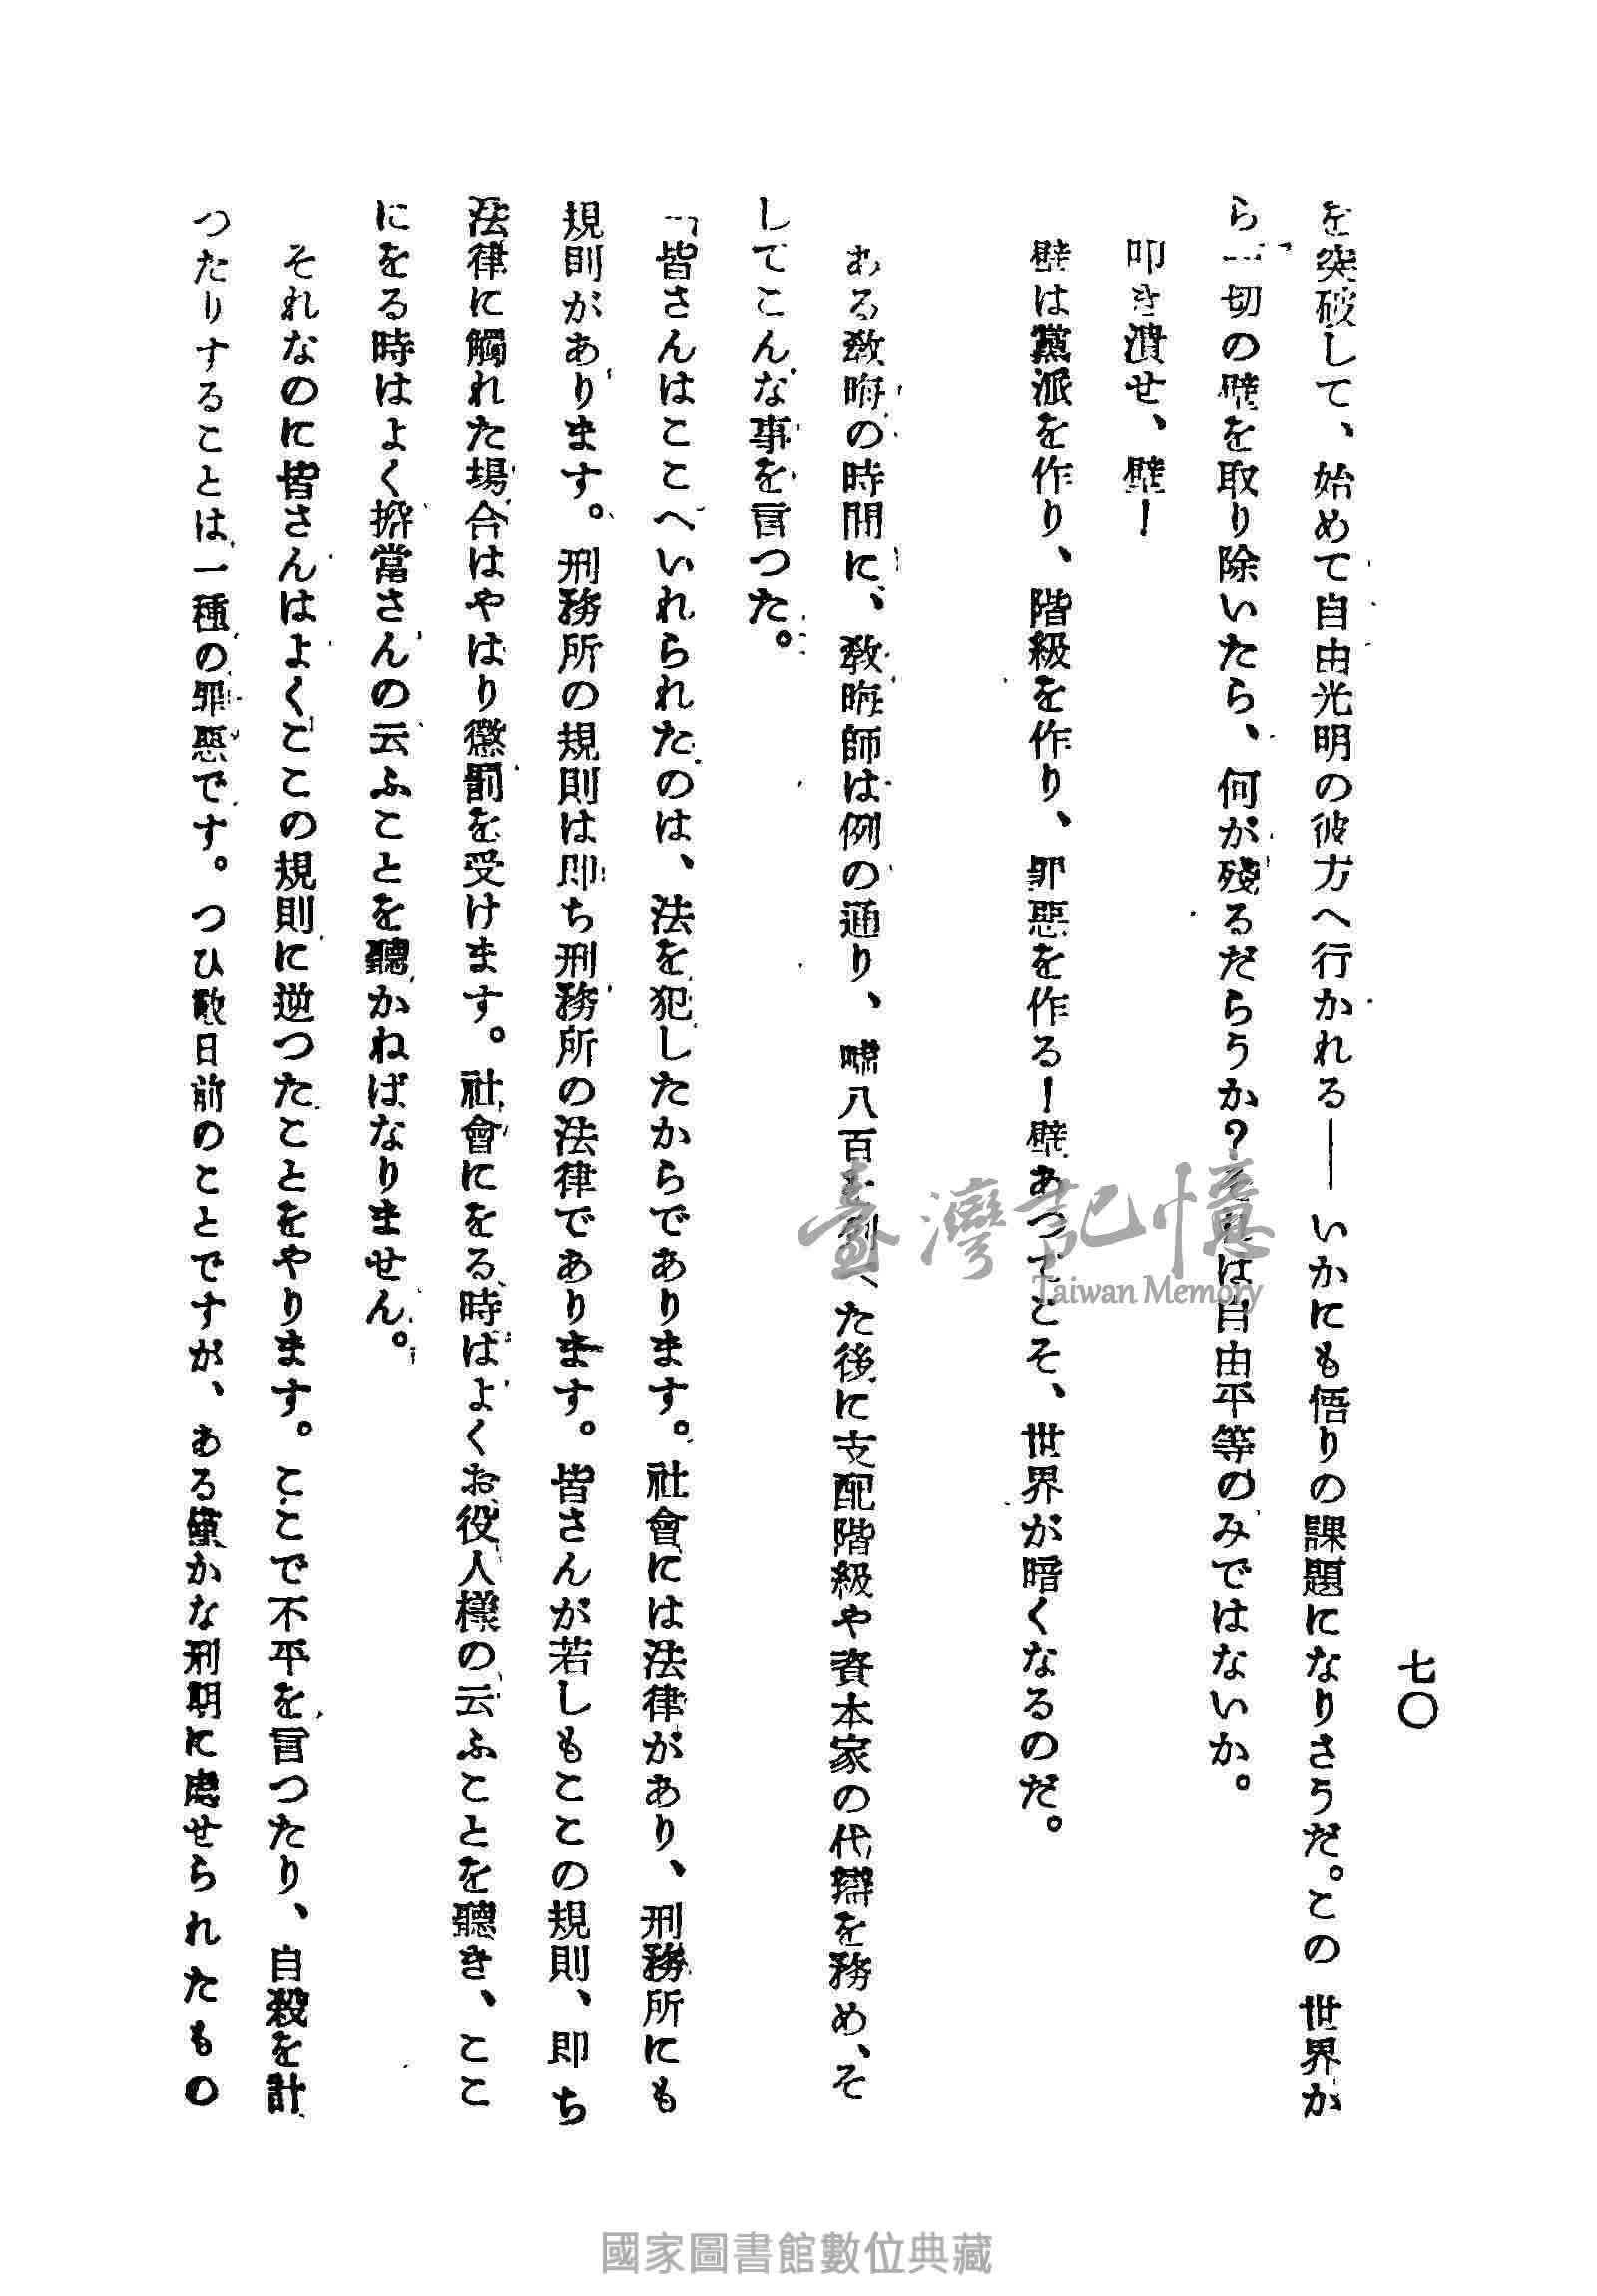 七〇
を突破して、始めて自由光明の彼方へ行かれる——いかにも悟りの課題になりさうだ。この世界か
ら一切の壁を取り除いたら、何が殘るだらうか？それは自由平等のみではないか。
叩き潰せ、壁！
壁は黨派を作り、階級を作り、罪惡を作る！壁あつてこそ、世界が暗くなるのだ。
ある敎晦の時間に、敎晦師は例の通り、嘘八百を列べた後に支配階級や資本家の代辯を務め、そ
してこんな事を言つた。
「皆さんはここへいれられたのは、法を犯したからであります。社會には法律があり、刑務所にも
規則があります。刑務所の規則は即ち刑務所の法律であります。皆さんが若しもここの規則、即ち
法律に觸れた場合はやはり懲罰を受けます。社會にをる時はよくお役人樣の云ふことを聽き、ここ
にをる時はよく擔當さんの云ふことを聽かねばなりません。
それなのに皆さんはよくここの規則に逆つたことをやります。ここで不平を言つたり、自殺を計
つたりすることは一種の罪惡です。つひ數日前のことですが、ある僅かな刑期に處せられたもの
臺灣記憶
Taiwan Memory
國家圖書館數位典藏